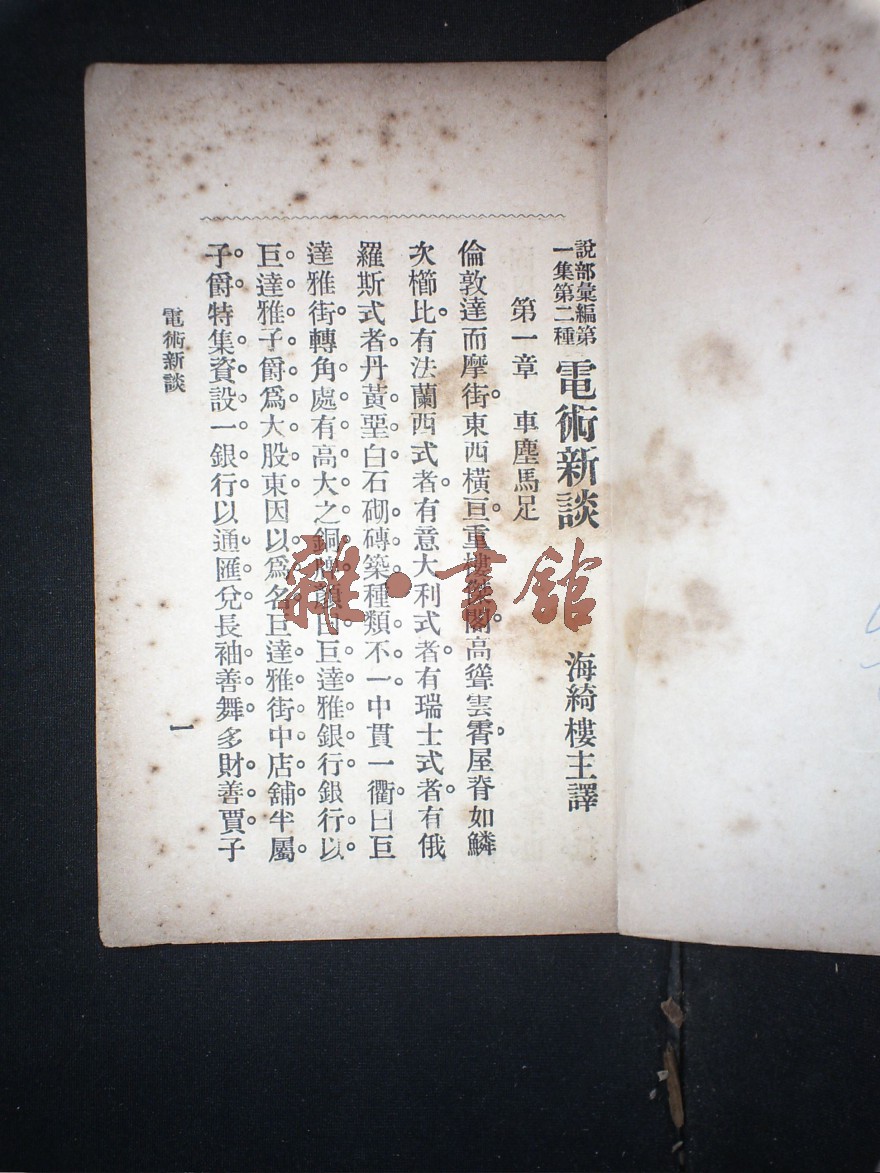 說部彙編第
一集第二種
電術新談
海綺樓主譯
第一章 車塵馬足
倫敦達而摩街東西橫亘重樓傑閣高聳雲霄屋脊如鱗
次櫛比有法蘭西式者有意大利式者有瑞士式者有俄
羅斯式者丹黃堊白石砌磚築種類不一中貫一衢曰巨
達雅街轉角處有高大之銅牌顏曰巨達雅銀行銀行以
巨達雅子爵爲大股東因以爲名巨達雅街中店舖半屬
子爵特集資設一銀行以通匯兌長袖善舞多財善賈子
電術新談
一
雜·書館